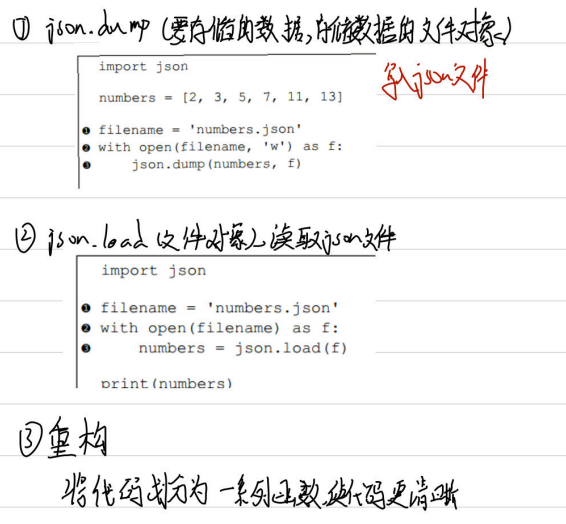 ① json.dump(要存储的数据,存储数据的文件对象)
import json
写入json文件
numbers = [2, 3, 5, 7, 11, 13]
❶ filename = 'numbers.json'
❷ with open(filename, 'w') as f:
❸ json.dump(numbers, f)
② json.load(文件对象)读取json文件
import json
❶ filename = 'numbers.json'
❷ with open(filename) as f:
❸ numbers = json.load(f)
print(numbers)
③重构
将代码划分为一系列函数,使代码更清晰